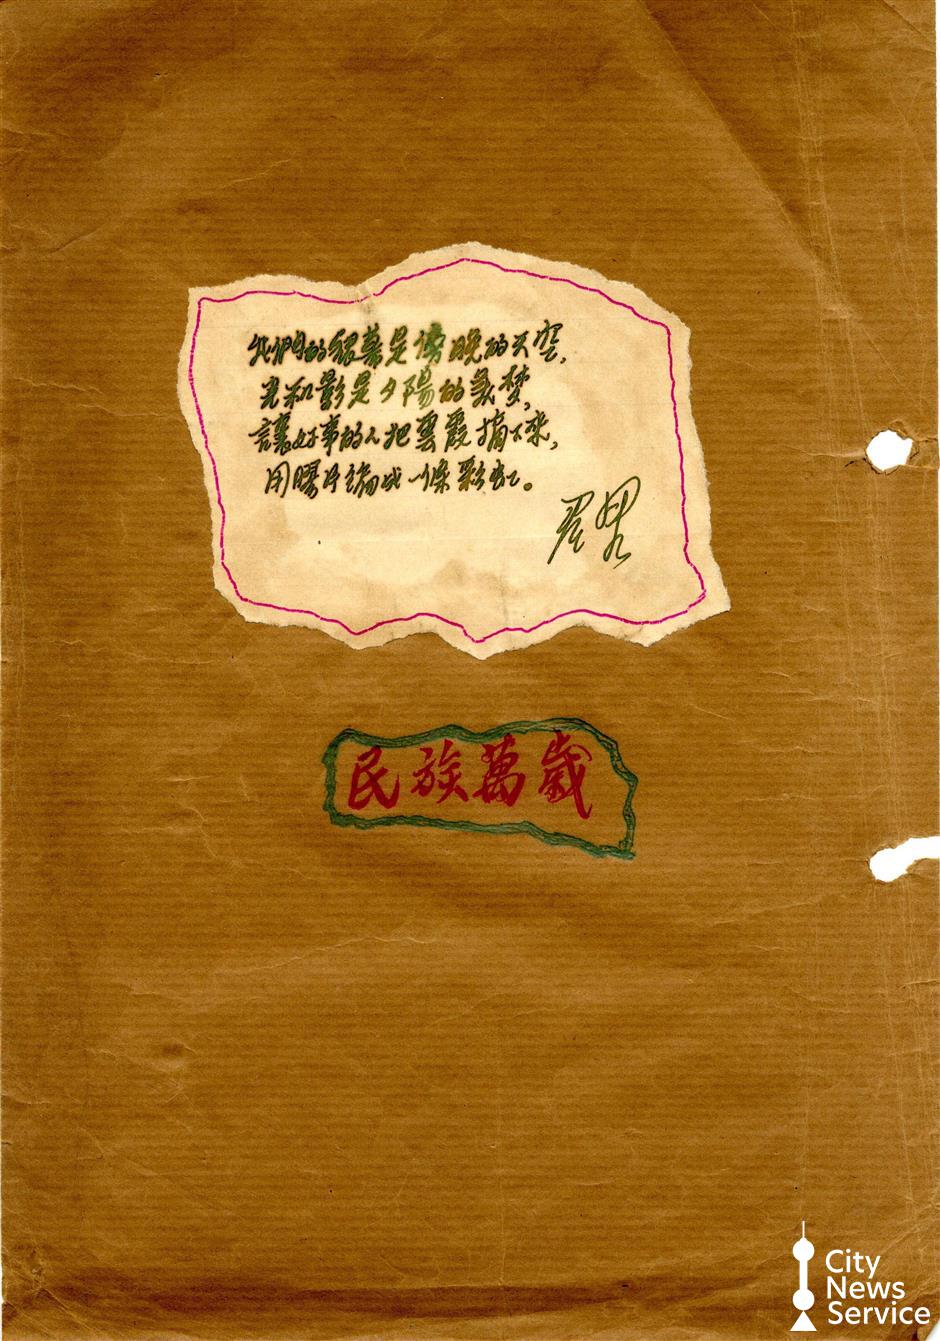 我們的銀幕是傍晚的天空,
光和影是夕陽的美夢,
讓好事的人把雲霞摘下來,
用膠片編成一條彩虹。
君里
民族萬歲
City
News
Service